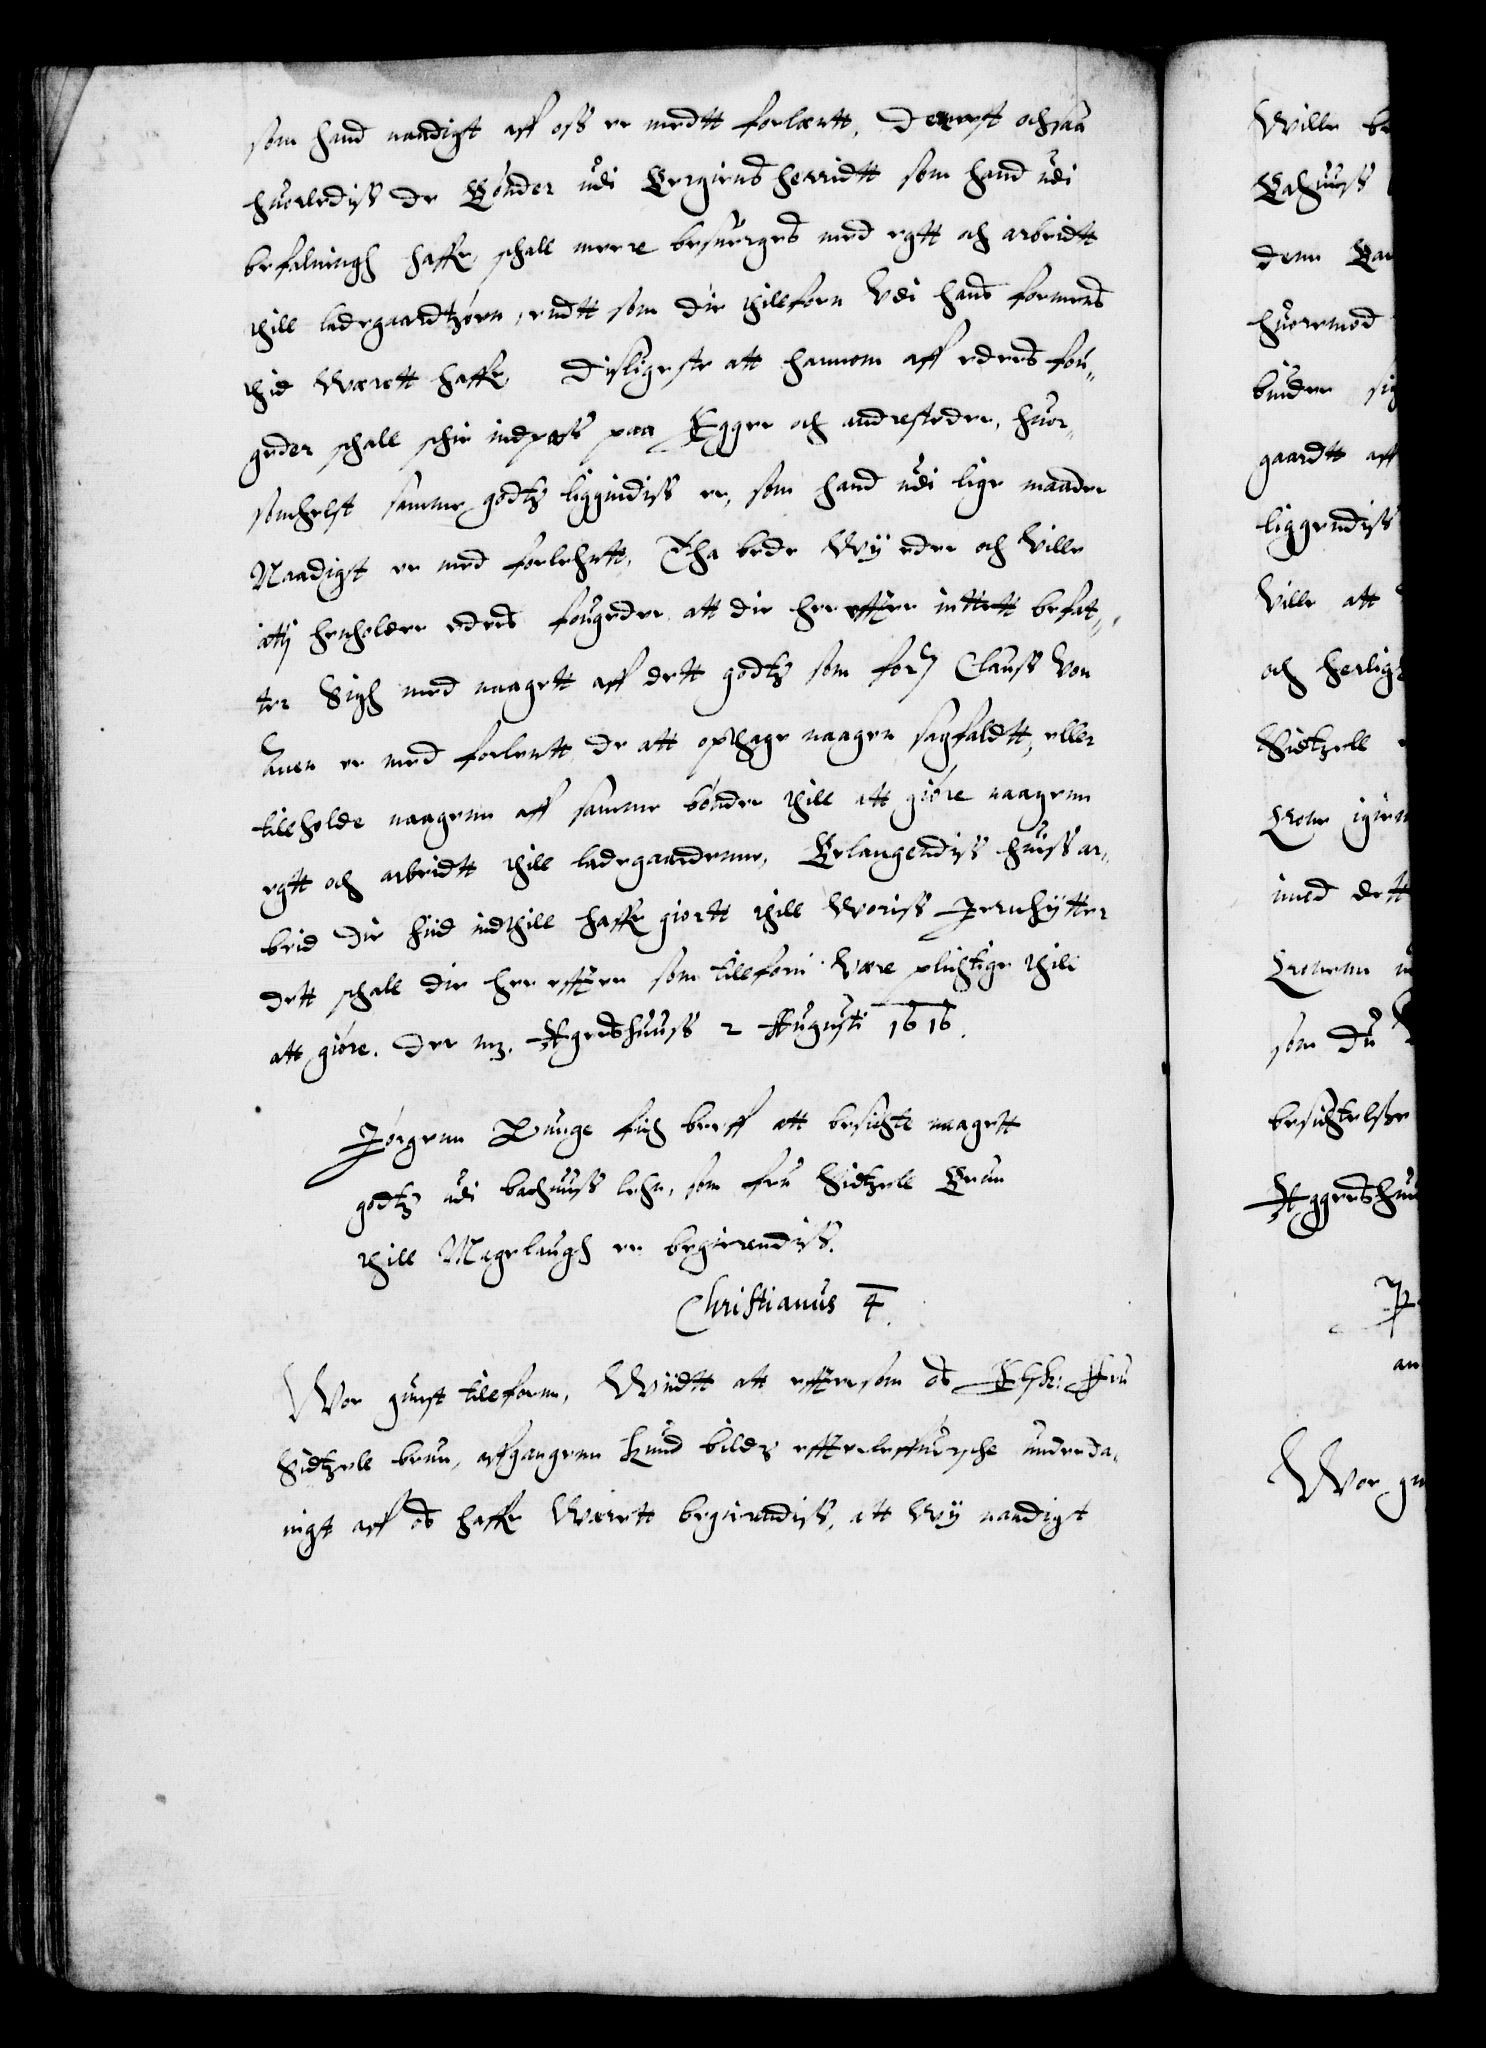 som hand naadigst aff oss er medtt forlæntt, Dernest ochsaa
huorledis de Bønder udi Bergens herridtt som hand udi
befalningh haffr, schall mere besuerges med egtt och arbeidtt
thill ladegaardtzørn, endtt som dir thillforn Vdi hans formends
thid Værett haffr, Disligeste att hannom aff eders fou„
geder schall schie indpass paa Egger och andrestedr, huor„
somhelst samme godtz liggindis er, som hand udi lige maade
Naadigst er med forlehntt, Tha bede Wy eder och Ville
atj henholder eders fougeder att dir her effter inttett befat„
ter Sigh med naagett aff dett godtz som forne Clauss Von
Auen er med forlentt de att opthage naagen sagfaldtt, eller
tilleholde naagenn aff samme bønder thill att giøre naagenn
egtt och arbeidtt thill ladegaardenne, Belangendis huiss ar„
beid dir hiid indthill haffr giortt thill Woriss Jernhytter
dett schall dir her effter som tillforn Være plichtige thill
att giøre. Der mz. Agershuuss 2 Augusti 1616.
Jørgenn Lunge fich breff att besichte naagett
godtz udi bahuuss lehn, som fru Sidtzell Brun
thill Magelaugh er begierendis.
Christianus 4.
Wor gunst tillforn, Viidtt att efftersom os Elsk: Fru
Sidtzell brun, affgangenn Knud bilds effterleffuersche underda„
nigt aff os haffr Værett begierendis, att Wy naadigst
Ville be
Bahuuss
denn
huoremod
binder sig
gaardtt aff
liggendiss
Ville att
och herlig
Sidtzell
Crone igien
imed dett
Cronenn
som du
besichtelser
Aggershuu
an
Wor gu